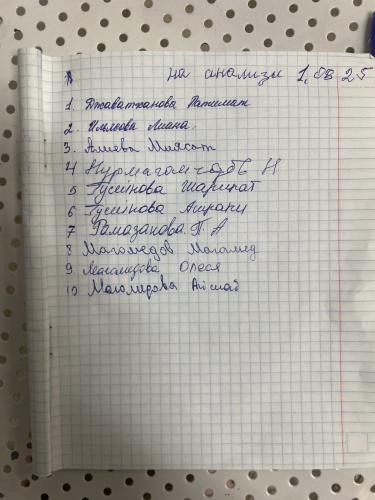 на анализы 1.08.25
1. Джаватханова Патимат
2. Лиана
3. Алиева Миясат
4 Н
5 Гусейнова Шарипат
6 Гусейнова
7 Рамазанова П. А
8 Магомедов Магомед
9 Магомедова Олеся
10 Магомедова Айшат